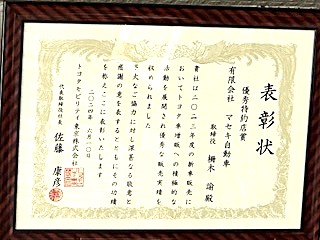 表彰状
優秀特約店賞
有限会社 マセキ自動車
取締役 柵木 諭殿
貴社は二〇二三年度の新車販売に
おいてトヨタ車増販への積極的な
活動を展開され優秀な販売実績を
収められました
多大なご協力に対し深甚なる敬意と
感謝の意を表するとともにその功績
を称えここに表彰いたします
二〇二四年 六月一〇日
トヨタモビリティ東京株式会社
代表取締役社長 佐藤 康彦